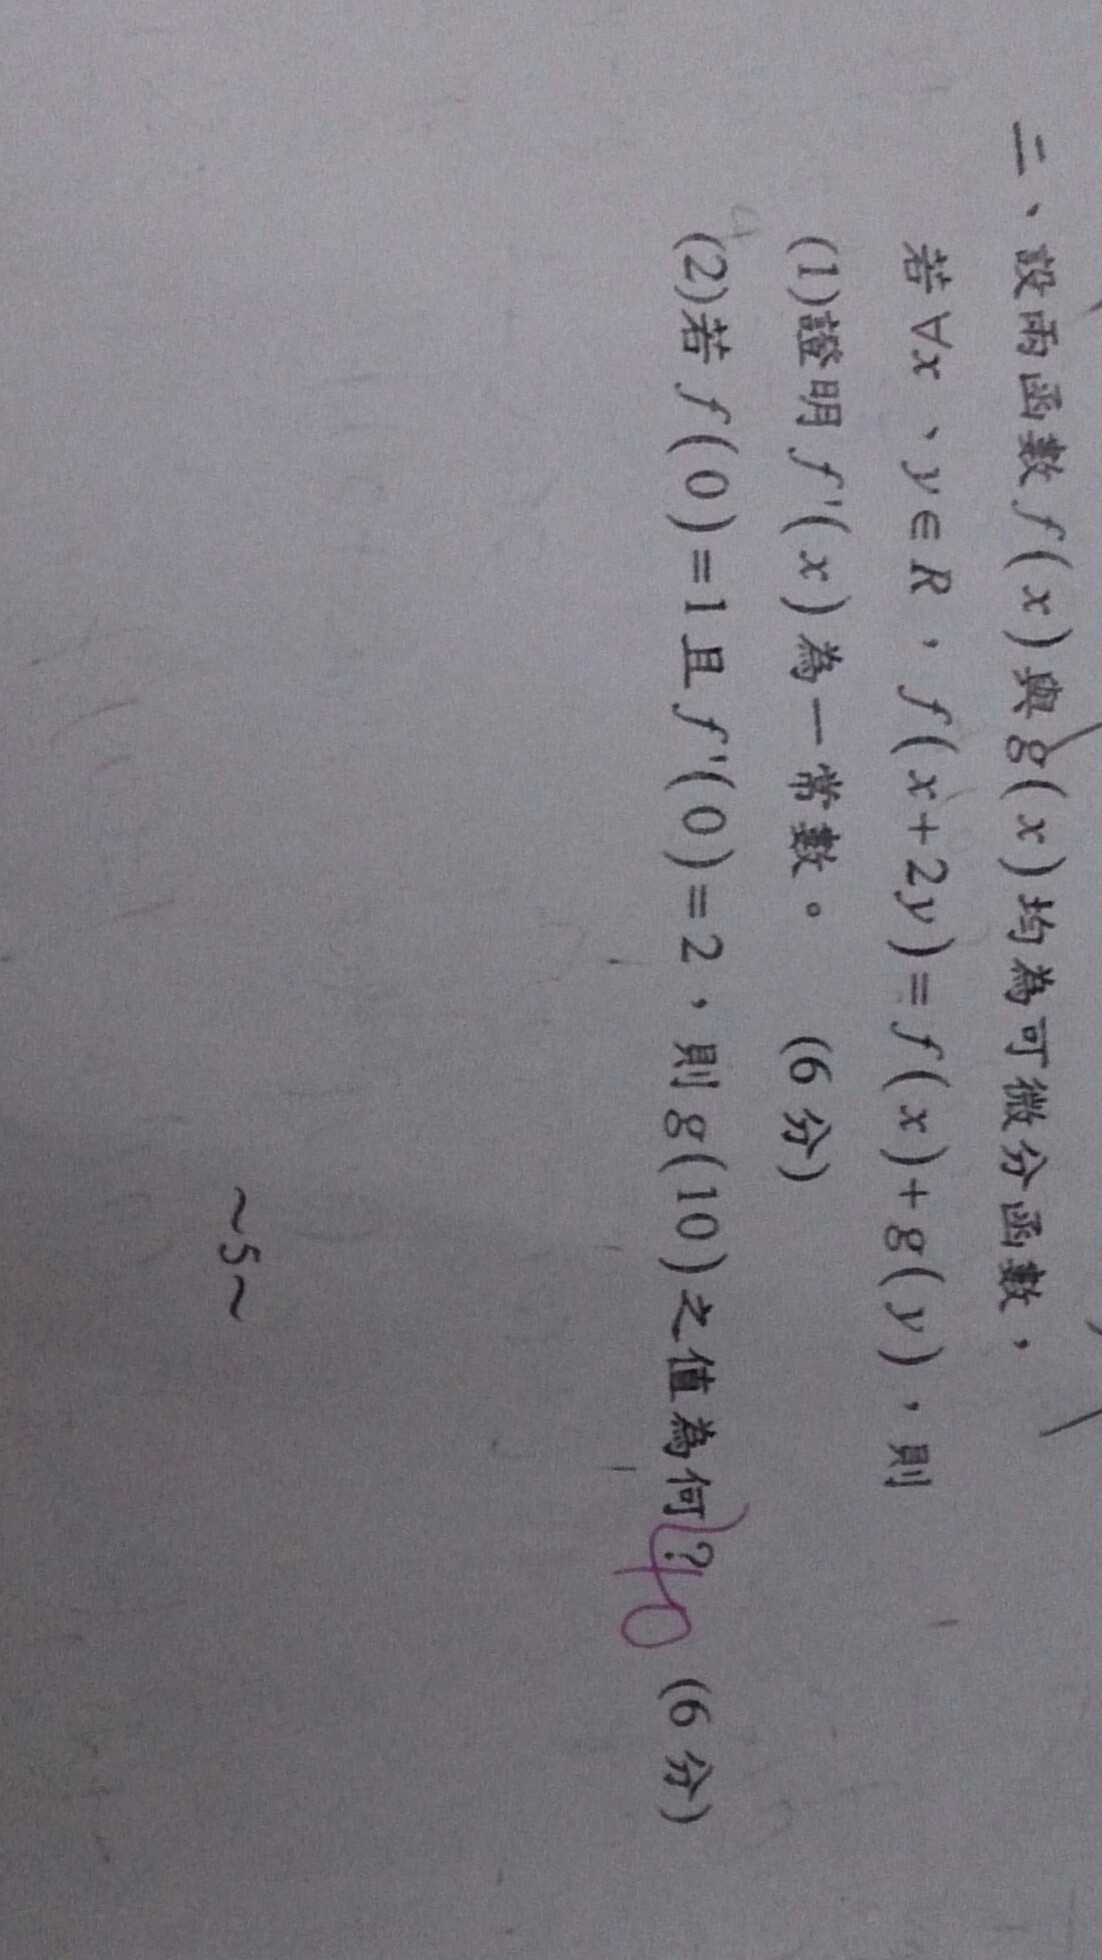 二、設兩函數 f(x) 與 g(x) 均為可微分函數，
若 ∀x、y∈R，f(x+2y)=f(x)+g(y)，則
(1)證明 f'(x) 為一常數。 (6 分)
(2)若 f(0)=1 且 f'(0)=2，則 g(10) 之值為何? (6 分)
40
~5~